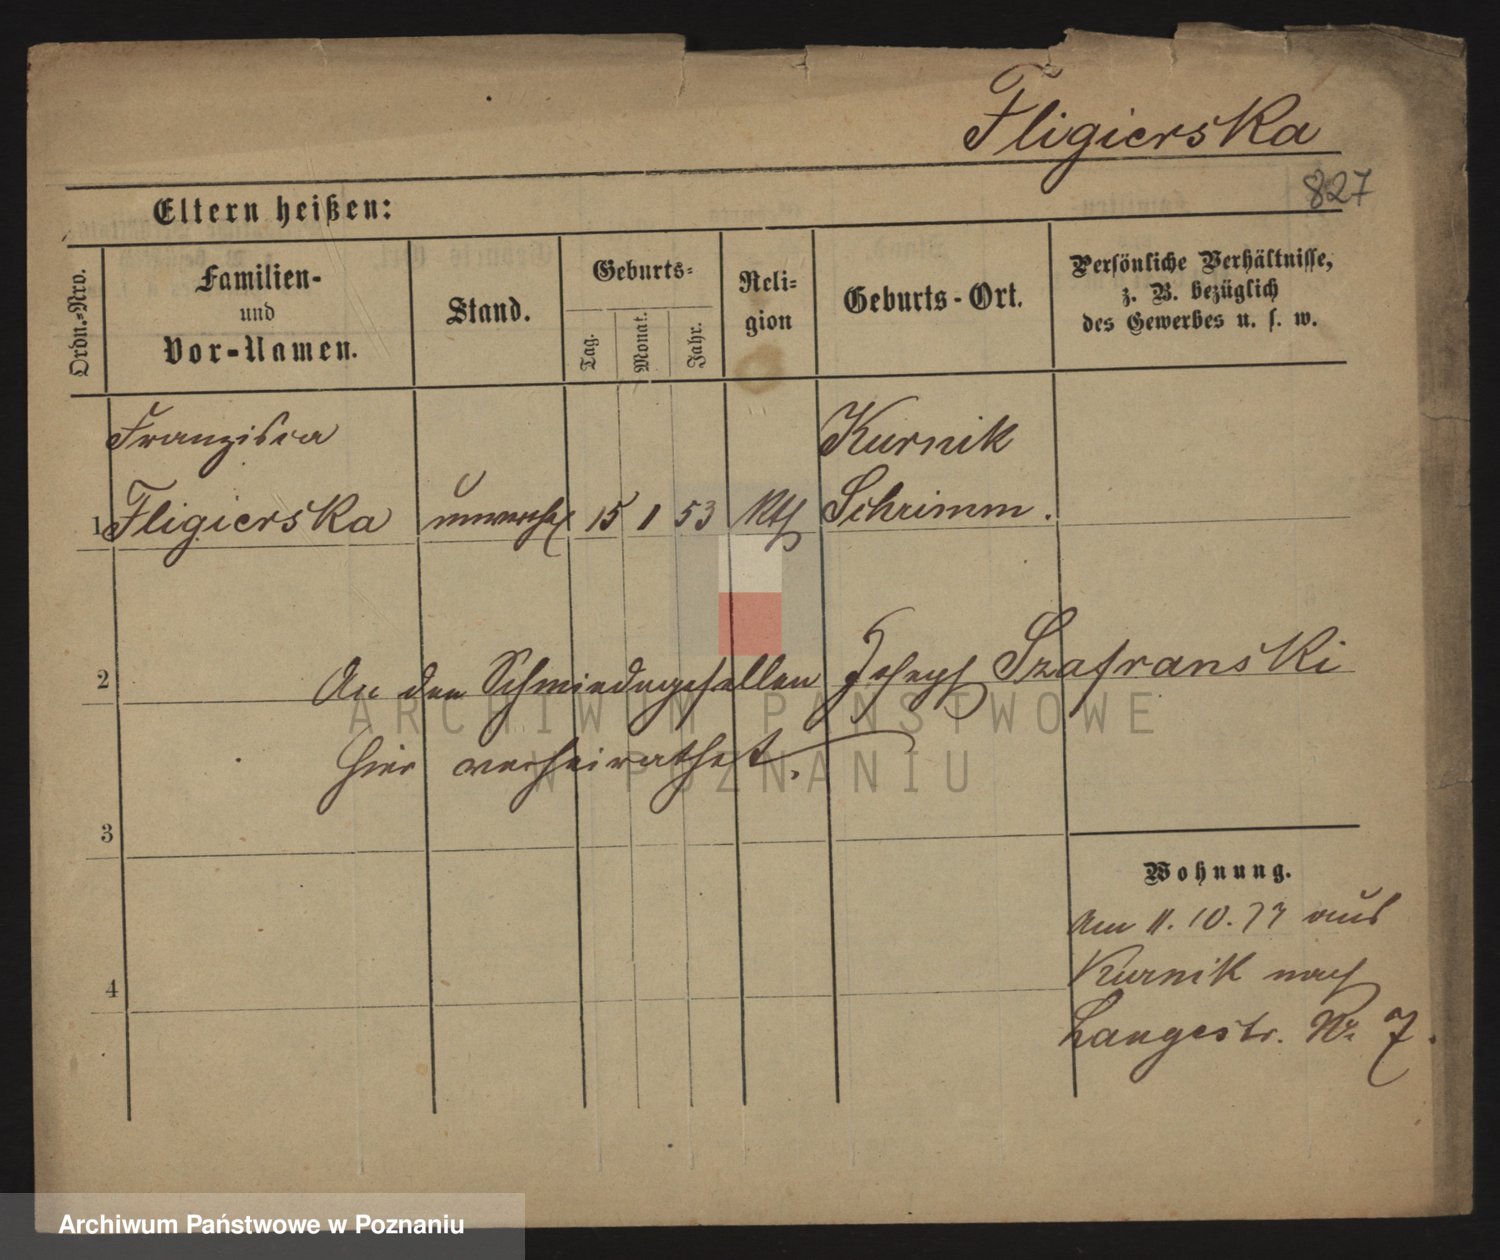 Fligierska
827
Eltern heißen:
Ordn.-Nro.
Familien-
und
Vor-Namen.
Stand.
Geburts-
Tag.
Monat.
Jahr.
Reli-
gion
Geburts-Ort.
Persönliche Verhältnisse,
z. B. bezüglich
des Gewerbes u. s. w.
Franziska
Kurnik
1 Fligierska unverh. 15 1 53 Kth Schrimm.
2 An den Schmiedegesellen Joseph Szafranski
hier verheirathet.
3
Wohnung.
Am 11. 10. 77 aus
4 Kurnik nach
Langestr. Nr. 7.
ARCHIWUM PAŃSTWOWE
W POZNANIU
Archiwum Państwowe w Poznaniu